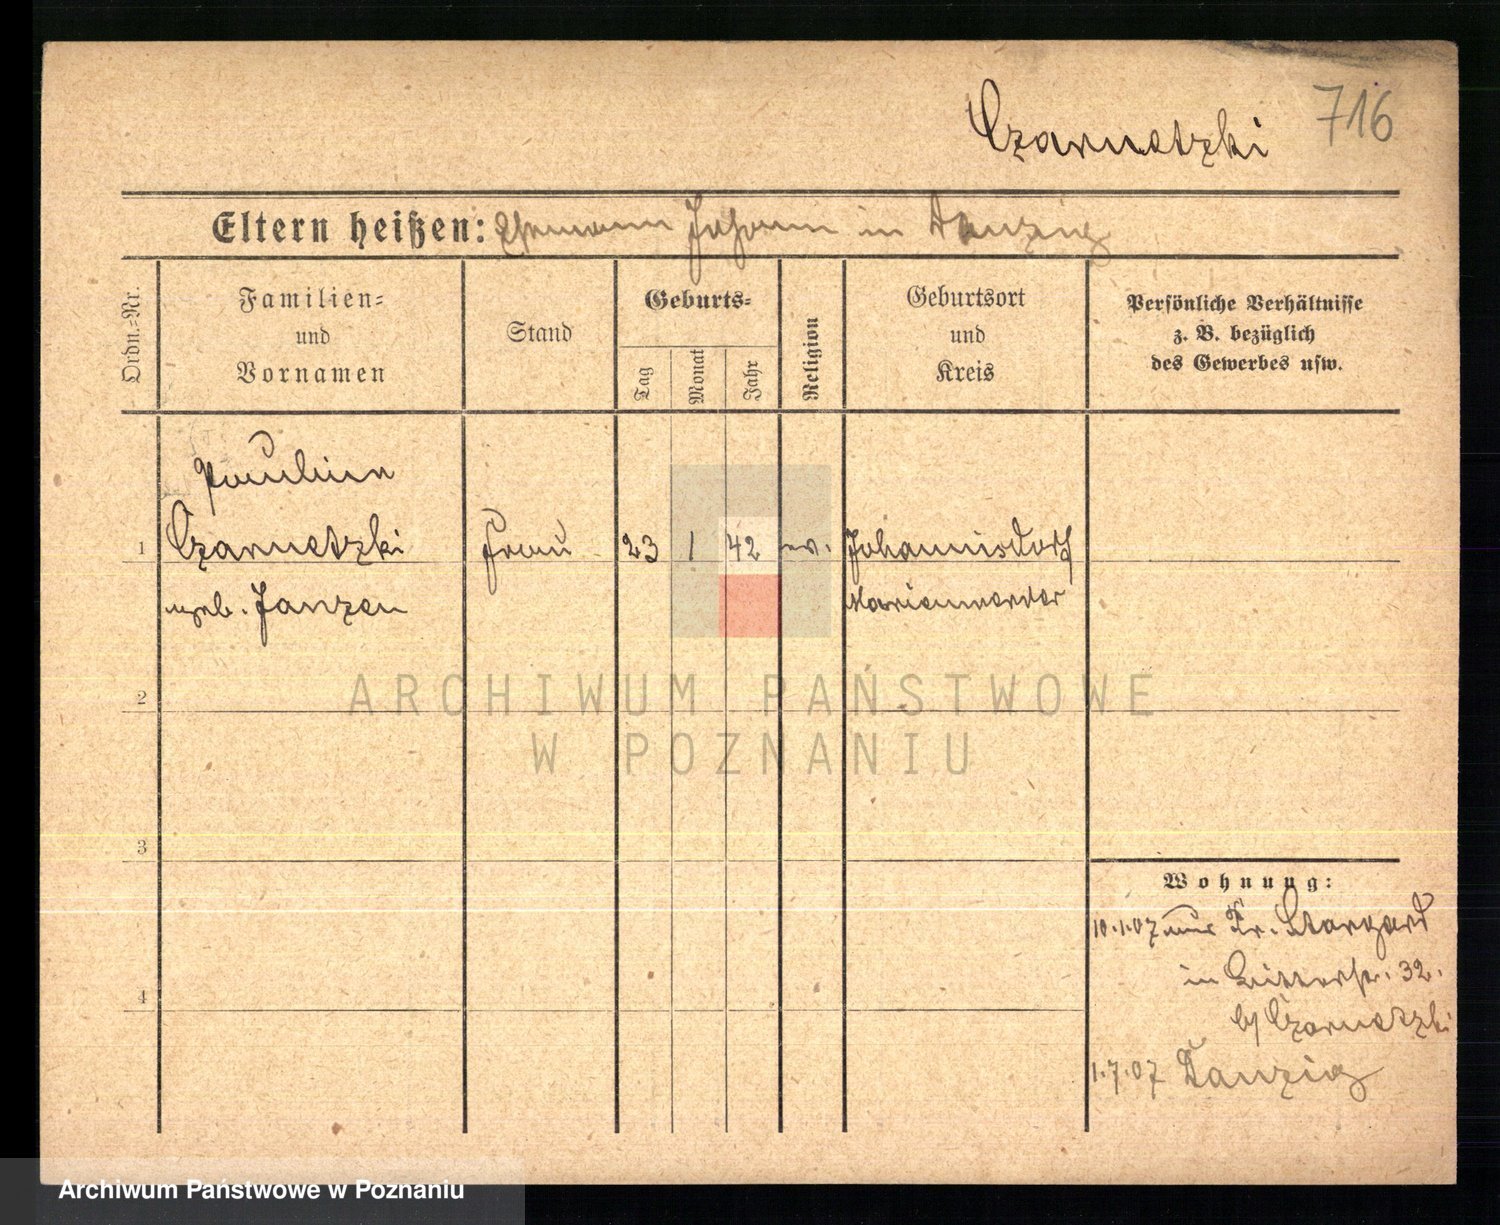 716
Czarnetzki
Eltern heißen: Ehemann Johann in Danzig
Ordn.-Nr.
Familien-
und
Vornamen
Stand
Geburts-
Tag
Monat
Jahr
Religion
Geburtsort
und
Kreis
Persönliche Verhältnisse
z. B. bezüglich
des Gewerbes usw.
Pauline
1 Czarnetzki Frau 23 1 42 ev. Johannisdorf
geb. Janzen Marienwerder
ARCHIWUM PAŃSTWOWE
W POZNANIU
2
3
Wohnung:
10.1.07 aus Pr. Stargard
in Ritterstr. 32.
b/ Czarnetzki
4
1.7.07 Danzig
Archiwum Państwowe w Poznaniu